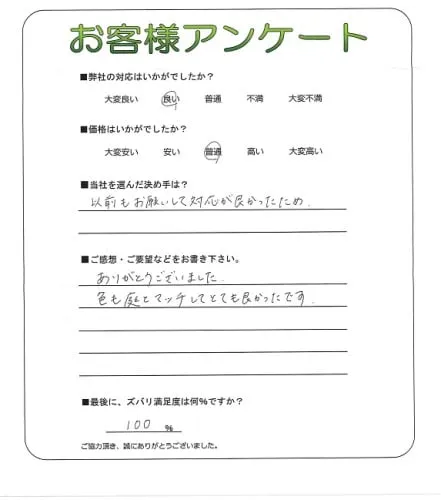 お客様アンケート
■弊社の対応はいかがでしたか？
大変良い 良い 普通 不満 大変不満
■価格はいかがでしたか？
大変安い 安い 普通 高い 大変高い
■当社を選んだ決め手は？
以前もお願いして対応が良かったため．
■ご感想・ご要望などをお書き下さい。
ありがとうございました．
色も庭とマッチしてとても良かったです．
■最後に、ズバリ満足度は何％ですか？
100 ％
ご協力頂き、誠にありがとうございました。